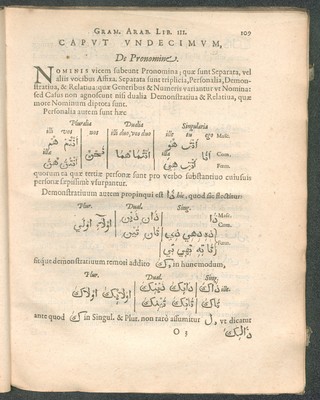 GRAM. ARAB. LIB. III. 109
CAPVT VNDECIMVM,
De Pronomine.
NOMINIS vicem subeunt Pronomina, quæ sunt Separata, vel
aliis vocibus Affixa. Separata sunt triplicia, Personalia, Demon-
strativa, & Relatiua quæ Generibus & Numeris variantur vt Nomina:
sed Casus non agnoscunt nisi dualia Demonstratiua & Relatiua, quæ
more Nominum diptota sunt.
Personalia autem sunt hæc
Pluralia Dualia Singularia
illi vos nos illi duo, vos duo ille tu ego
هم أنتم هو أنت Masc.
نحن أنتما هما أنا Com.
هن أنتن هي أنت Fœm.
quorum ea quæ tertiæ personæ sunt pro verbo substantiuo cuiusuis
personæ sæpissime vsurpantur.
Demonstratiuum autem propinqui est ذا hic, quod sic flectitur.
Plur. Dual. Sing.
ذان ذين ذا Masc.
أولاء أولي
تان تين
sicque demonstratiuum remoti addito ك, in hunc modum,
Plur. Dual. Sing.
ذانك ذينك ذاك ille.
أولائك أولاك
تانك تينك تاك
ante quod ك in Singul. & Plur. non rarò assumitur ل, vt dicatur
O 3 ذالك